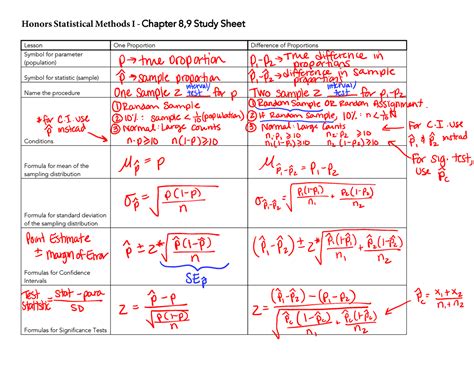 Honors Statistical Methods I - Chapter 8,9 Study Sheet
Lesson One Proportion Difference of Proportions
Symbol for parameter (population)
p → true proportion
p₁-p₂ → true difference in proportions
Symbol for statistic (sample)
p̂ → sample proportion
p̂₁-p̂₂ → difference in sample proportions
Name the procedure
One Sample Z interval/test for p
Two Sample Z interval/test for p₁-p₂
Conditions
*For C.I. use p̂ instead
① Random Sample
② 10%: sample < 1/10 (population)
③ Normal: Large Counts
n·p≥10 n(1-p)≥10
① Random Sample OR Random Assignment
② If Random Sample, 10%: n < 1/10 N
③ Normal: Large Counts
n₁p₁ ≥10 n₂p₂ ≥10
n₁(1-p₁)≥10 n₂(1-p₂)≥10
For C.I. use p̂₁ & p̂₂ instead
For sig. tests, use p̂c
Formula for mean of the sampling distribution
μp̂ = p
μp̂₁-p̂₂ = p₁-p₂
Formula for standard deviation of the sampling distribution
σp̂ = √(p(1-p)/n)
σp̂₁-p̂₂ = √(p₁(1-p₁)/n₁ + p₂(1-p₂)/n₂)
Point Estimate ± Margin of Error
Formulas for Confidence Intervals
p̂ ± z* √(p̂(1-p̂)/n)
SEp̂
(p̂₁-p̂₂) ± z* √(p̂₁(1-p̂₁)/n₁ + p̂₂(1-p̂₂)/n₂)
Test Statistic = stat - para / SD
Formulas for Significance Tests
z = (p̂ - p) / √(p(1-p)/n)
z = ((p̂₁-p̂₂) - (p₁-p₂)) / √(p̂c(1-p̂c)/n₁ + p̂c(1-p̂c)/n₂)
p̂c = (x₁+x₂)/(n₁+n₂)